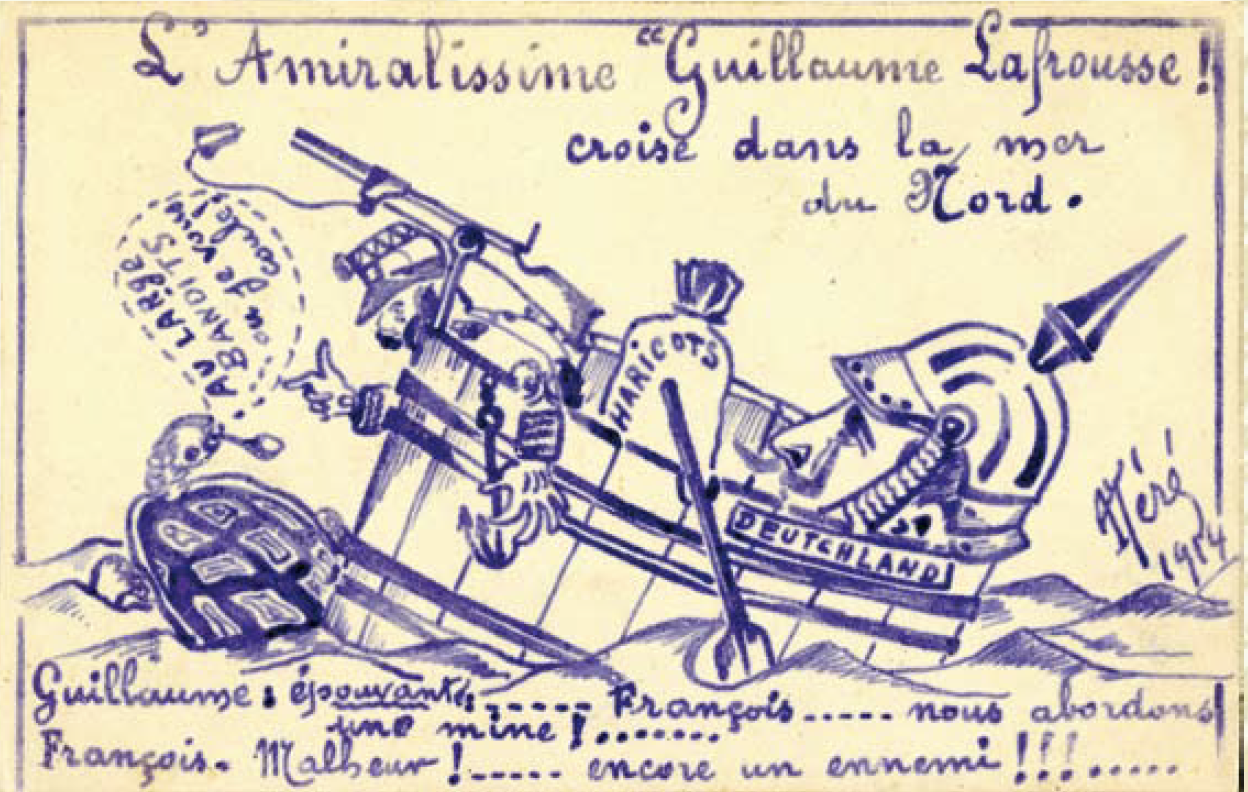 L'Amiralissime "Guillaume Lafrousse !
croise dans la mer
du Nord.
AU LARGE
BANDITS
ou je vous
coule!
HARICOTS
DEUTCHLAND
1914
Guillaume : épouvanté: ...... François ..... nous abordons
une mine ! .......
François. Malheur ! ..... encore un ennemi !!! .....